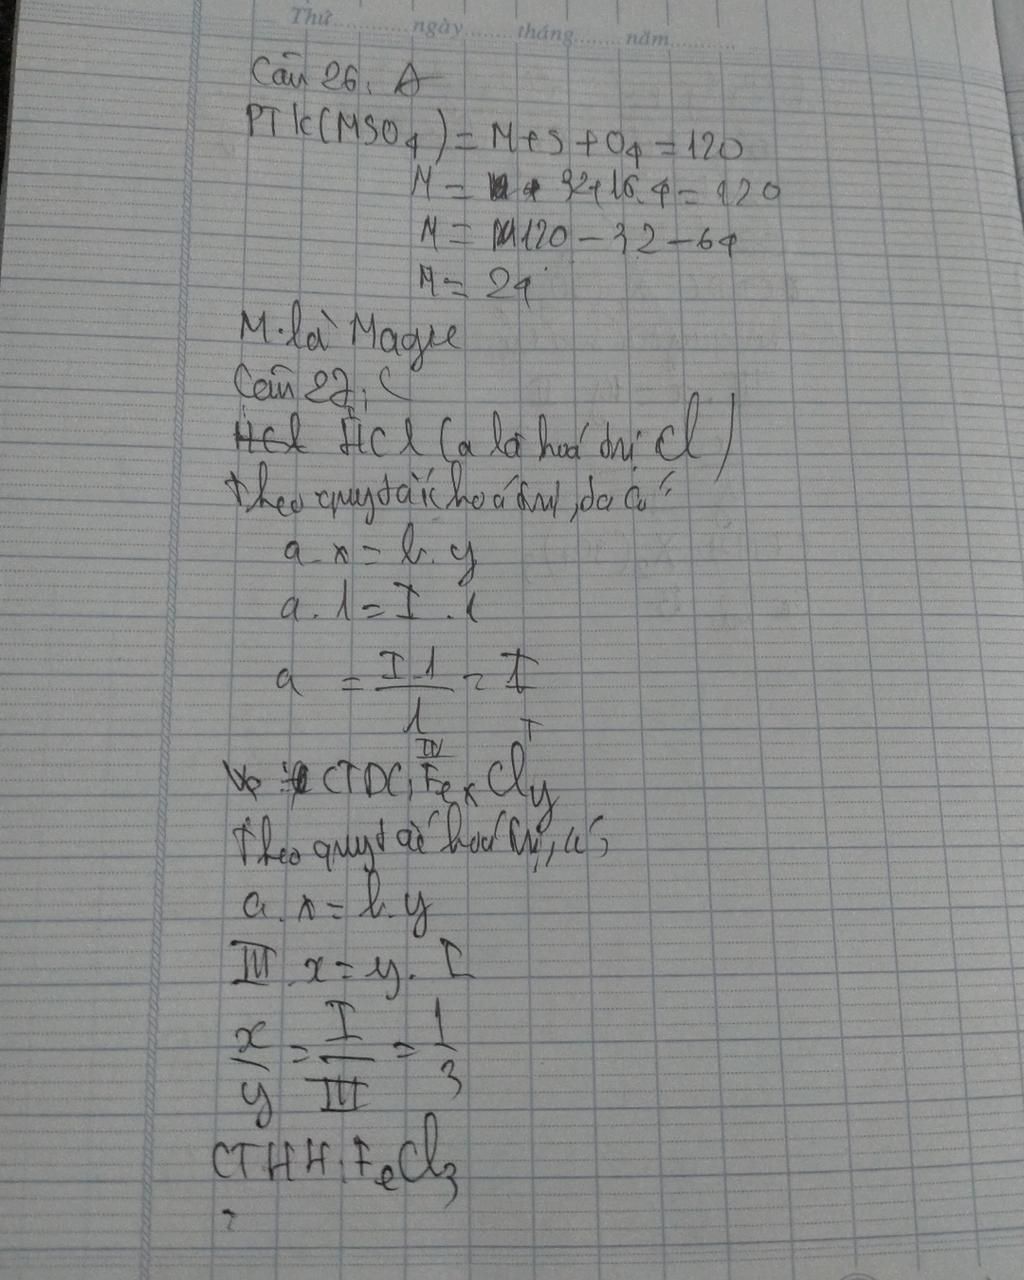 Thứ ngày tháng năm
Câu 26. A
PTK(MSO4) = M+S+O4 = 120
M = 32+16.4 = 120
M = 120 - 32 - 64
M = 24
M là Magie
Câu 27. C
HCl HCl (a là hoá trị Cl)
Theo quy tắc hoá trị, ta có
a.x = b.y
a.1 = I.1
a = I.1/1 = I
CTDC: Fe(III)xCl(I)y
Theo quy tắc hoá trị, có
a.x = b.y
III x = y.I
x/y = I/III = 1/3
CTHH: FeCl3